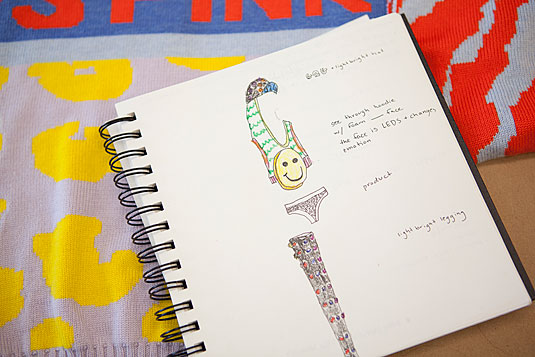 SPINK
+ light bright hat
see through hoodie
w/ foam face
the face is LEDS + changes
emotion
product
light bright legging